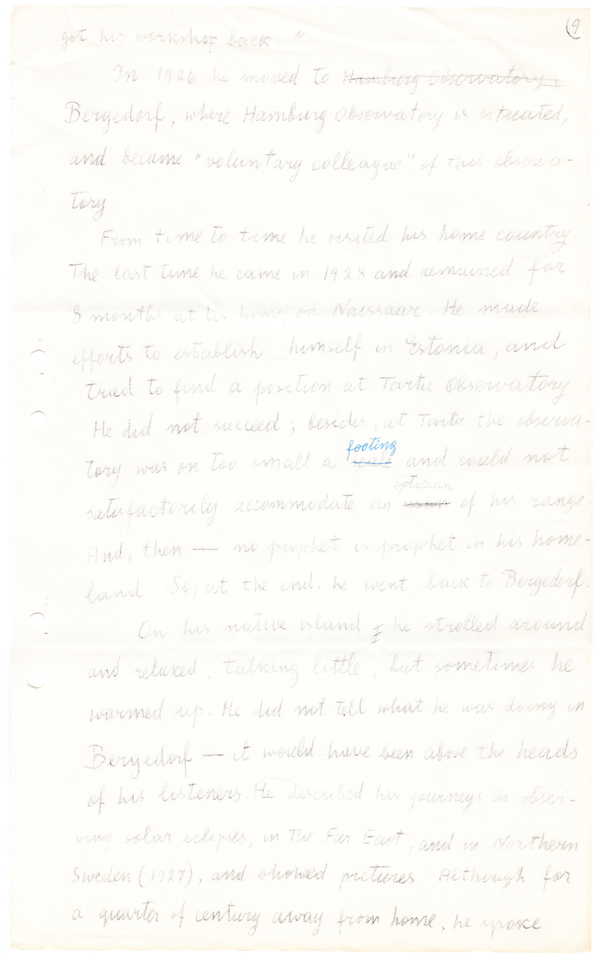 9
got his workshop back."
In 1926 he moved to Hamburg Observatory,
Bergedorf, where Hamburg Observatory is situated,
and became "voluntary colleague" of this observa-
tory
From time to time he visited his home country
The last time he came in 1928 and remained for
8 months at his home on Naissaar. He made
efforts to establish himself in Estonia, and
tried to find a position at Tartu Observatory
He did not succeed; besides, at Tartu the observa-
footing
tory was on too small a scale and could not
optician
satisfactorily accommodate an of his range
And, then — no prophet is prophet in his home-
land. So, at the end, he went back to Bergedorf.
On his native island he strolled around
and relaxed, talking little, but sometimes he
warmed up. He did not tell what he was doing in
Bergedorf — it would have been above the heads
of his listeners. He described his journeys in obser-
ving solar eclipses, in The Far East, and in Northern
Sweden (1927), and showed pictures. Although for
a quarter of century away from home, he spoke